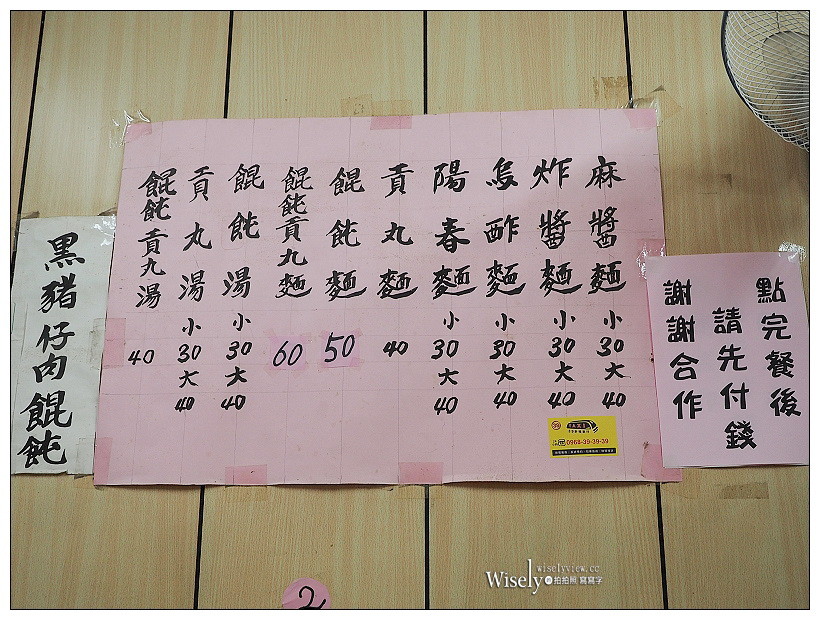 麻醬麵 小30 大40
炸醬麵 小30 大40
烏酢麵 小30 大40
陽春麵 小30 大40
貢丸麵 40
餛飩麵 50
餛飩貢丸麵 60
餛飩湯 小30 大40
貢丸湯 小30 大40
餛飩貢丸湯 40
點完餐後
請先付錢
謝謝合作
黑豬仔肉餛飩
0968-39-39-39
2
wiselyview.cc
Wisely の 拍拍照 寫寫字